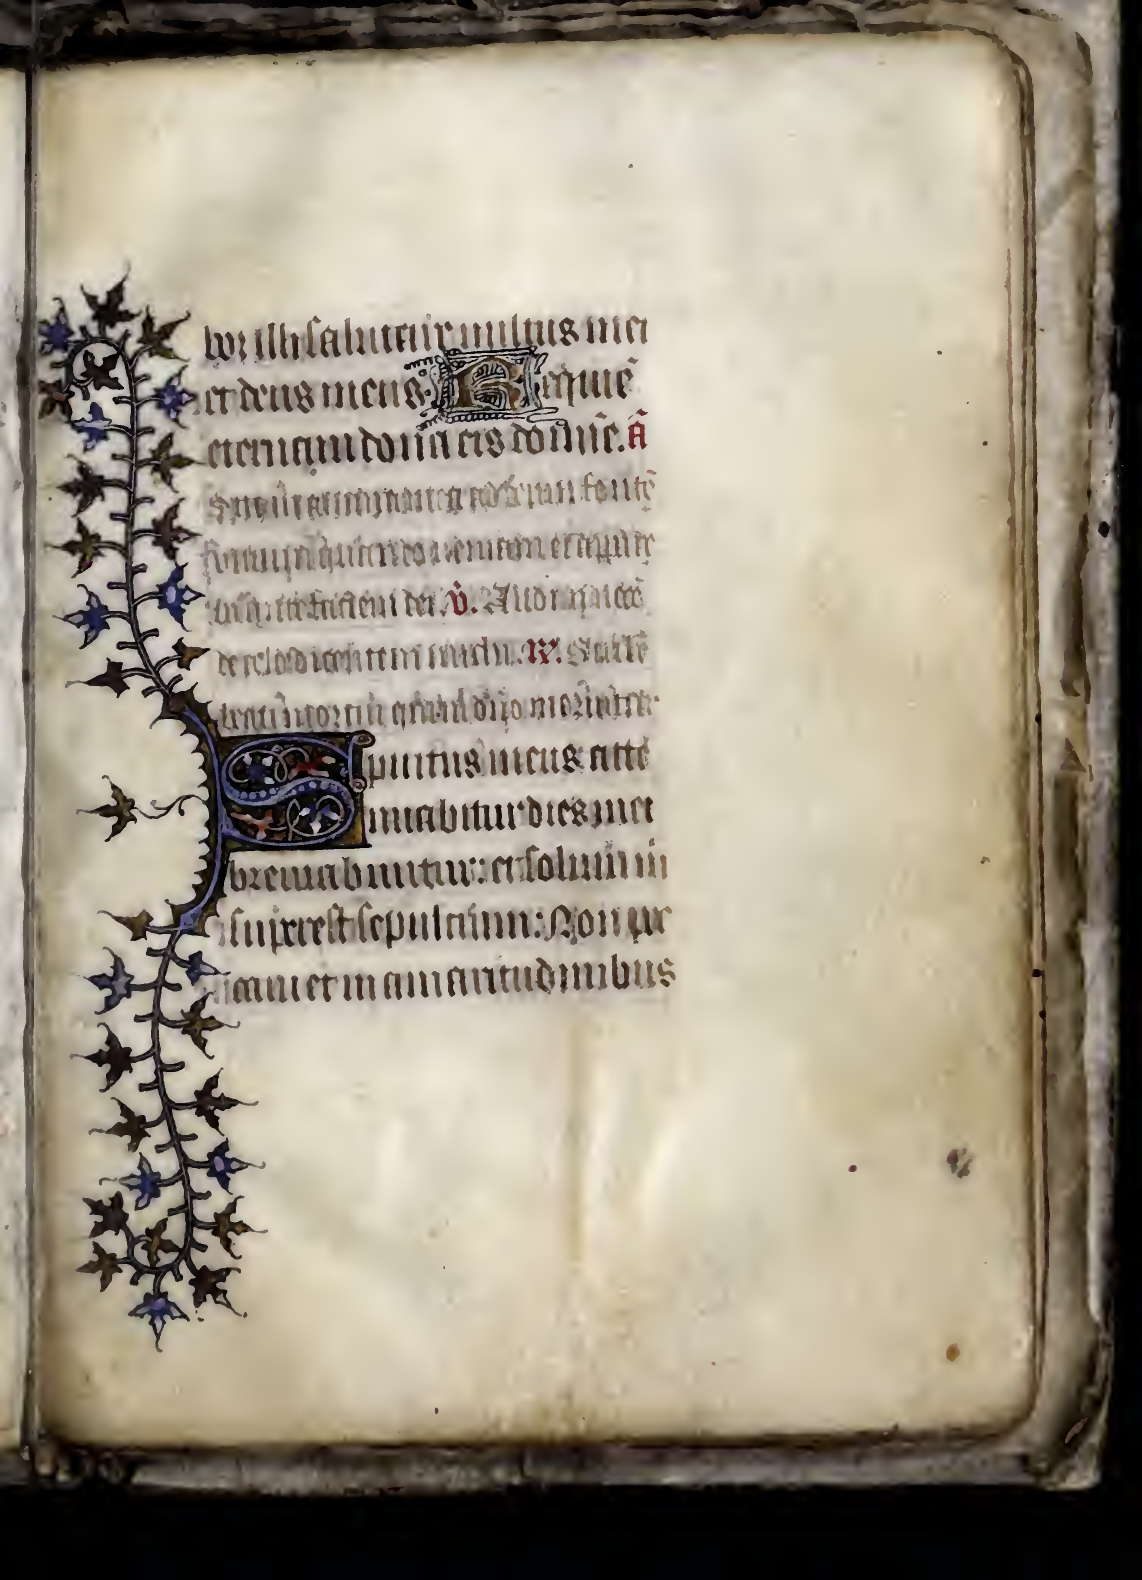 bor illi salutare vultus mei
et deus meus. Requiē
eternam dona eis domīe. ā
Sitiuit anima mea ad deum fontē
uiuum quando veniam et apparebo
ante faciem dei. v̄. Audiui uocē
de celo dicentem michi. R̄. Scribe
beati mortui qui in dn̄o moriūtur
Spiritus meus atte
nuabitur dies mei
breuiabuntur: et solum m̄
superest sepulcrum: Non pec
caui et in amaritudinibus